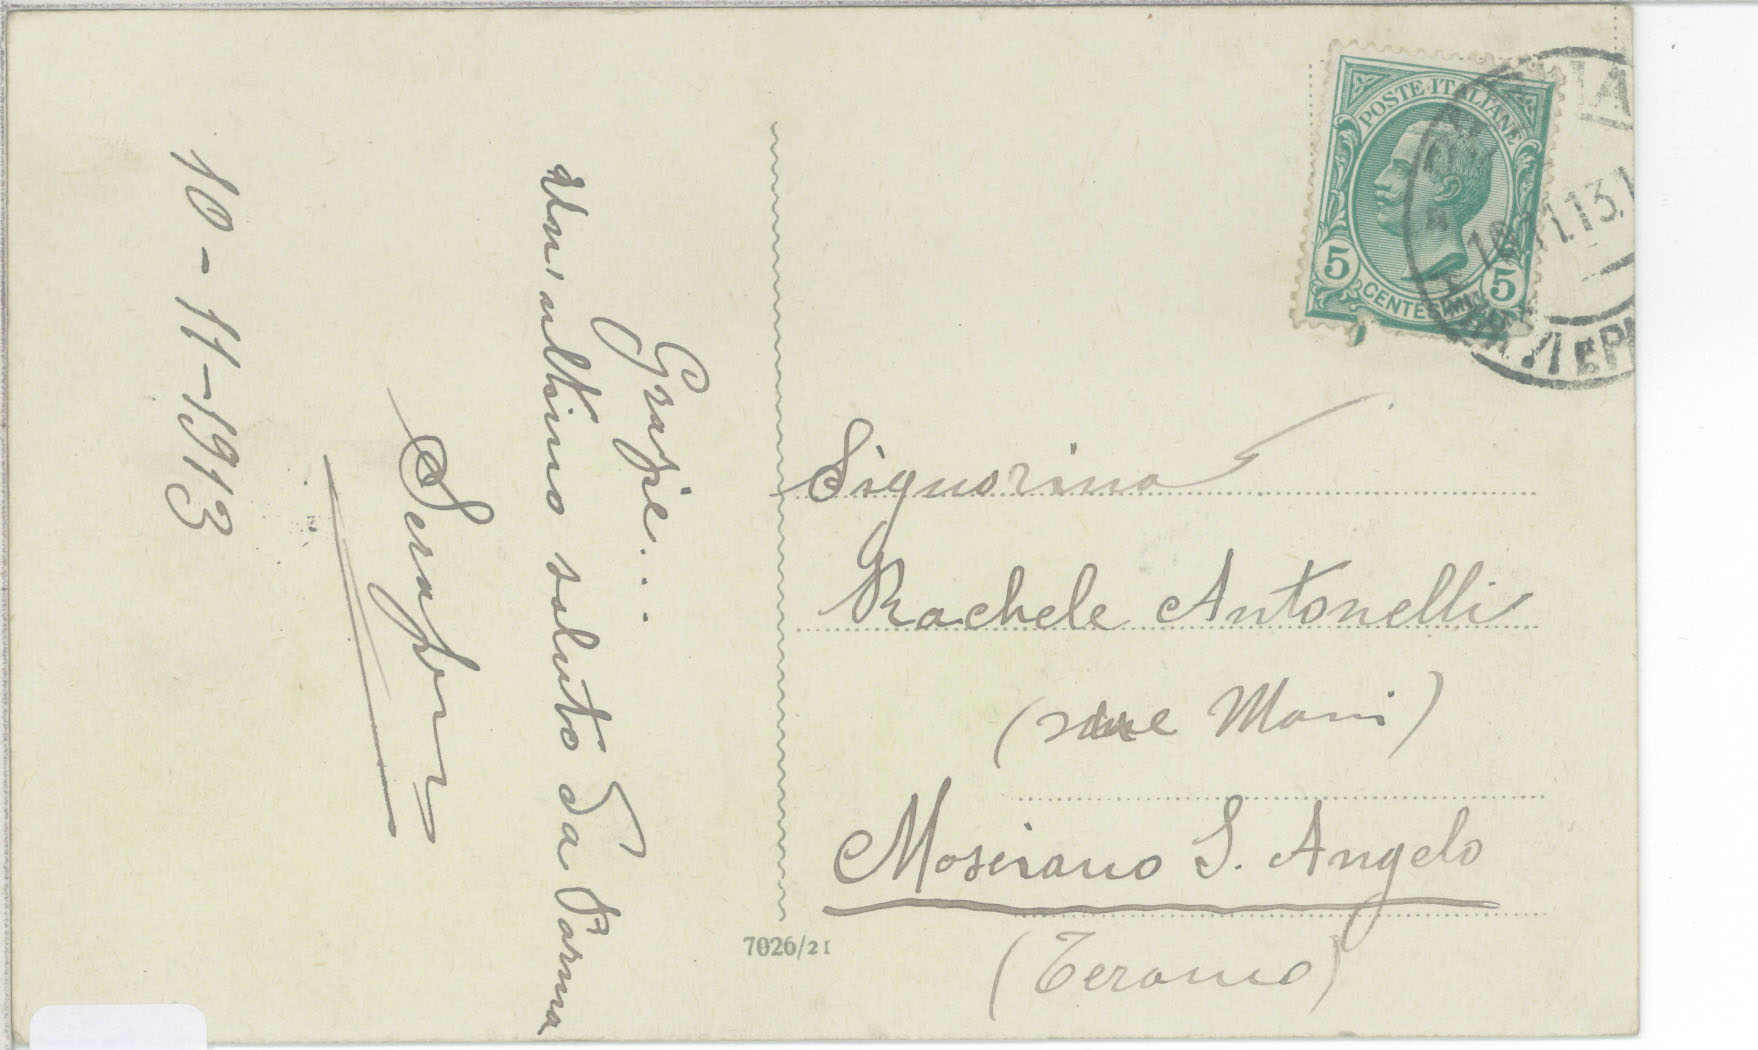 Grazie...
Un' ultimo saluto da Parma
10-11-1913
POSTE ITALIANE
5 CENTESIMI 5
Signorina
Rachele Antonelli
Mosciano S. Angelo
(Teramo)
7026/21